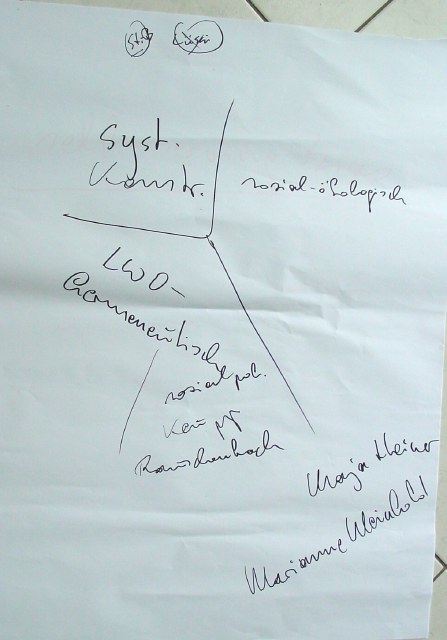 Syst.
Konstr.
sozial-ökologisch
LWO-
hermeneutisch
sozialpol.
Rauschenbach
Maja Heiner
Marianne Meinhold